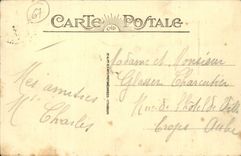 61
CARTE POSTALE
Mes amitiés
M Charles
Madame et Monsieur
Glasser Charcutier
Rue de l'hôtel de Ville
Troyes Aube